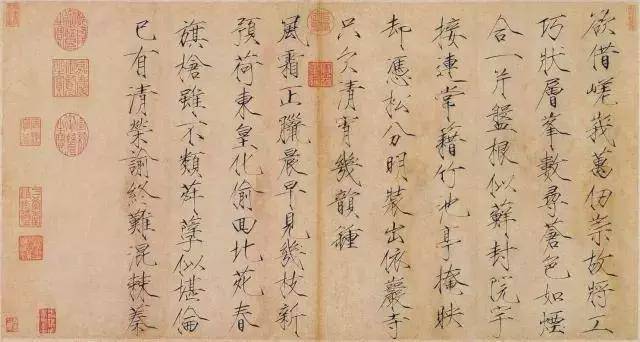 欲借嵯峩萬仞崇故將工
巧狀層峯數尋蒼色如煙
合一片盤根似蘚封院宇
接連常藉竹池亭掩映
却憑松分明裝出依巖寺
只欠清宵幾韻鍾
風霜正臘晨早見幾枝新
預荷東皇化偷回北苑春
旗槍雖不類似堪倫
已有清榮諭終難混棘蓁